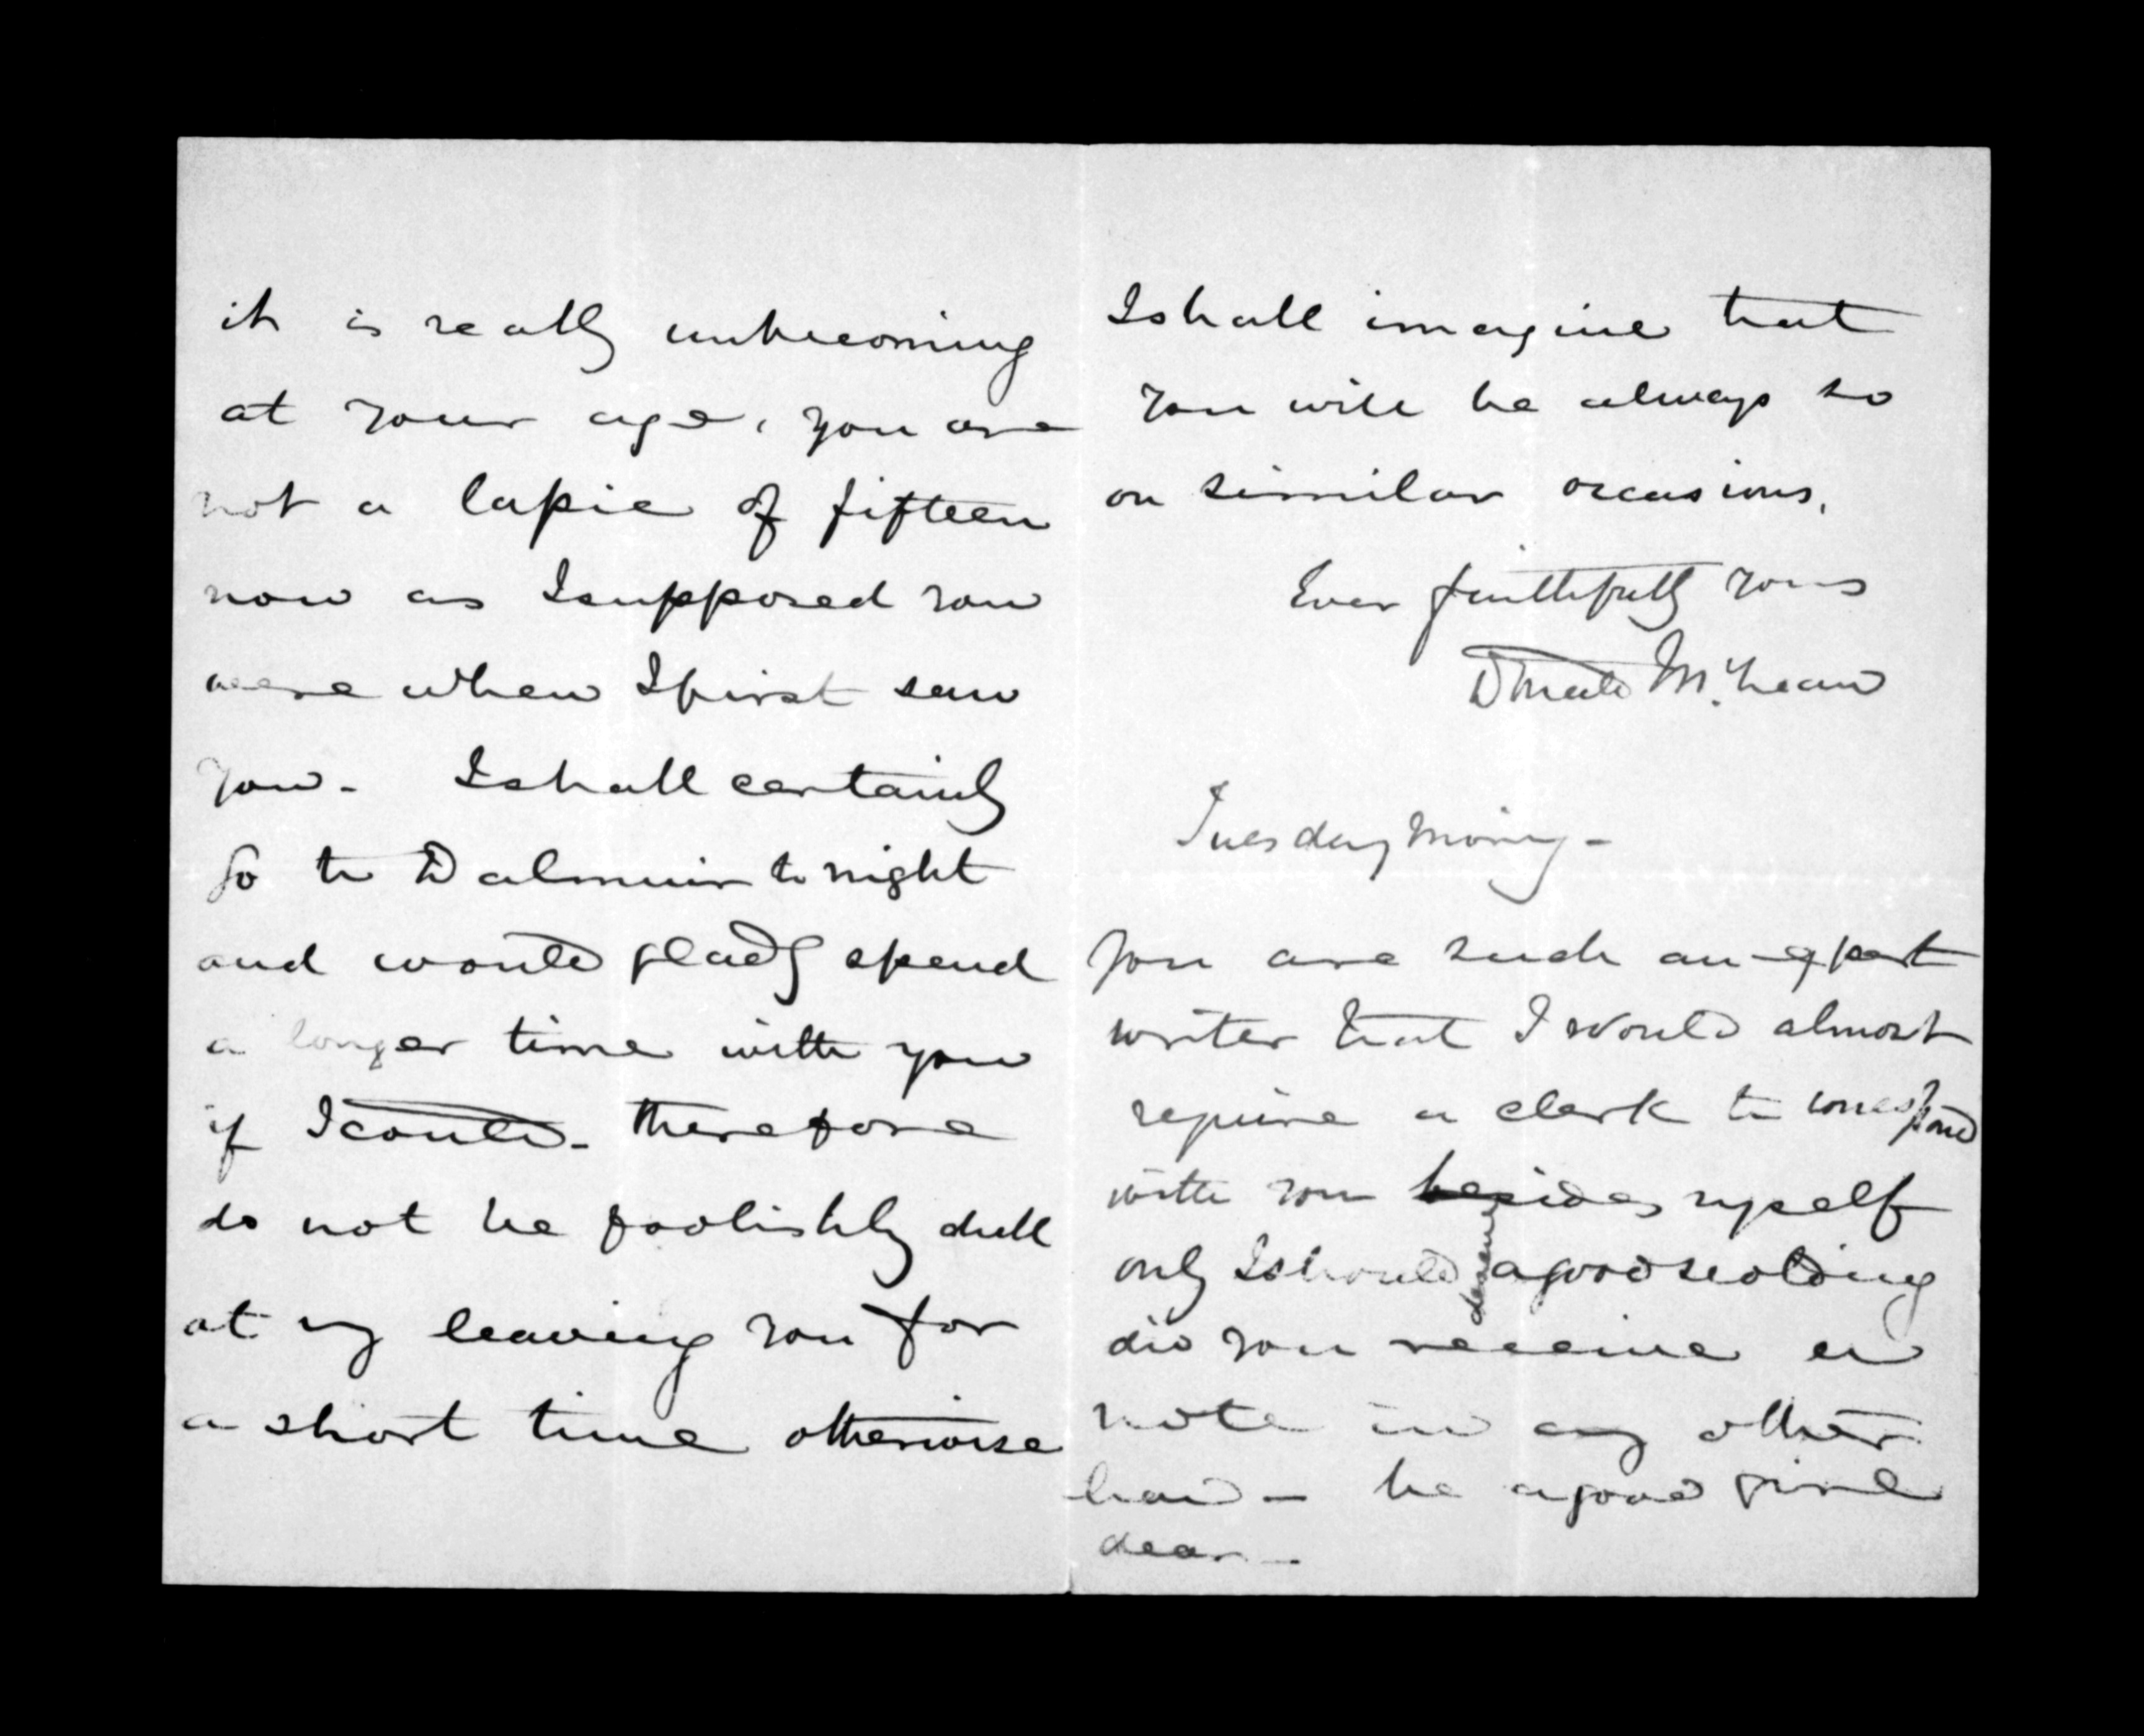 it is really unbecoming
at your age, you are
not a lassie of fifteen
now as I supposed you
were when I first saw
you - I shall certainly
go to Dalmuir to night
and would gladly spend
a longer time with you
if I could - therefore
do not be foolishly dull
at my leaving you for
a short time otherwise
I shall imagine that
you will be always so
on similar occasions.
Ever faithfully yours
Donald McLean
Tuesday Morng -
you are such an expert
writer that I would almost
require a clerk to correspond
with you besides myself
only I should deserve a good scolding
did you receive
note in any other
hand - be a good girl
dear -